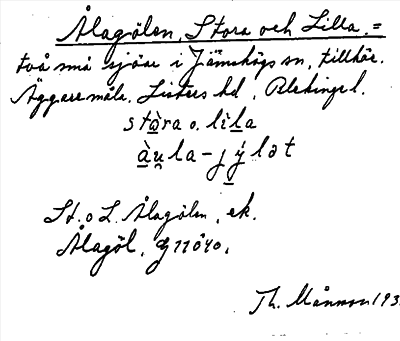 Ålagölen, Stora och Lilla. =
två små sjöar i Jämshögs sn, tillhör.
Äggaremåla, Listers hd, Blekinge l.
stàra o. lìla
àu̯la-jýlət
St. o L. Ålagölen, ek.
Ålagöl, G110 40.
Th. Månsson 193